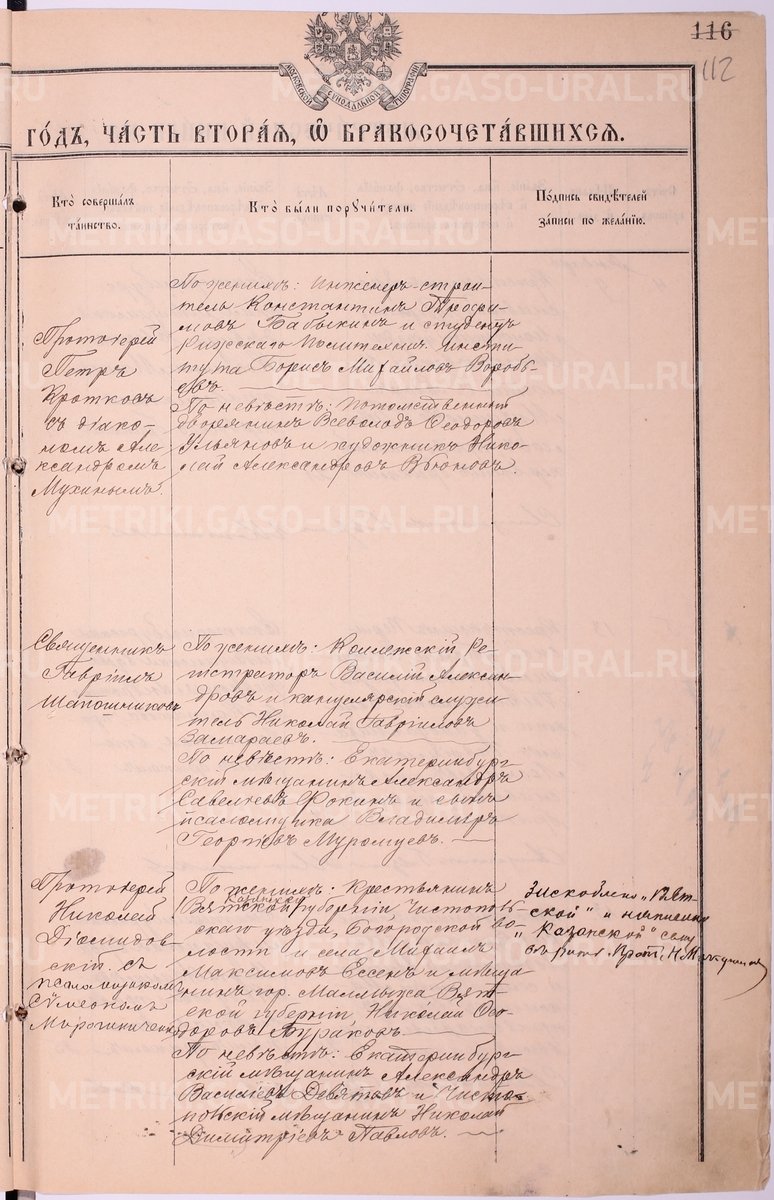 116
112
МОСКОВСКОЙ СѴНОДАЛЬНОЙ ТИПОГРАФІИ
ГОДЪ, ЧАСТЬ ВТОРАЯ, Ѡ БРАКОСОЧЕТАВШИХСЯ.
Кто совершалъ таинство.
Кто были поручители.
Подпись свидѣтелей записи по желанію.
Протоіерей
Петръ
Кротковъ
съ діако-
номъ Але-
ксандромъ
Мухинымъ.
По женихѣ: Инженеръ-строи-
тель Константинъ Трофи-
мовъ Бабыкинъ и студентъ
Рижскаго Политехнич. Инсти-
тута Борисъ Михайловъ Воробь-
евъ.
По невѣстѣ: Потомственный
дворянинъ Всеволодъ Ѳеодоровъ
Ульяновъ и художникъ Нико-
лай Александровъ Вьюновъ.
Священникъ
Гавріилъ
Шапошниковъ
По женихѣ: Коллежскій Ре-
гистраторъ Василій Алексан-
дровъ и канцелярскій служи-
тель Николай Гавріиловъ
Замараевъ.
По невѣстѣ: Екатеринбург-
скій мѣщанинъ Александръ
Савельевъ Фокинъ и сынъ
псаломщика Владиміръ
Георгіевъ Муромцевъ.
Протоіерей
Николай
Діомидов-
скій съ
псаломщикомъ
Сѵмеономъ
По женихѣ: Крестьянинъ
Казанской
(Вятской) губерніи, Чистополь-
скаго уѣзда, Богородской во-
лости и села Михаилъ
Максимовъ Ессенъ и мѣща-
нинъ гор. Малмыжа Вят-
ской губерніи Николай Ѳео-
доровъ Бураковъ.
По невѣстѣ: Екатеринбург-
скій мѣщанинъ Александръ
Васильевъ Девятовъ и Чисто-
польскій мѣщанинъ Николай
Димитріевъ Павловъ.
Зискоблено "Вят-
ской" и написано
"Казанской"
Прот. Н.
METRIKI.GASO-URAL.RU